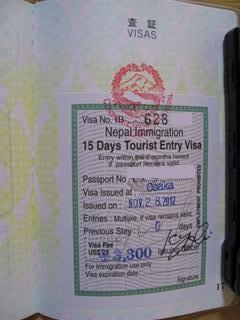 査 証
VISAS
Visa No. 1B 628
Nepal Immigration
15 Days Tourist Entry Visa
Entry within the 6 months hereof
if passport remains valid.
Passport No
Visa Issued at: Osaka
Issued on: NOV. 2 8. 2012
Entries : Multiple, if visa remains valid.
Previous Stay : 0 days
Visa Fee :
US$ 25
3,300
For Immigration use only
Visa expiration date :
Signature
EMPLOYMENT PROHIBITED
17